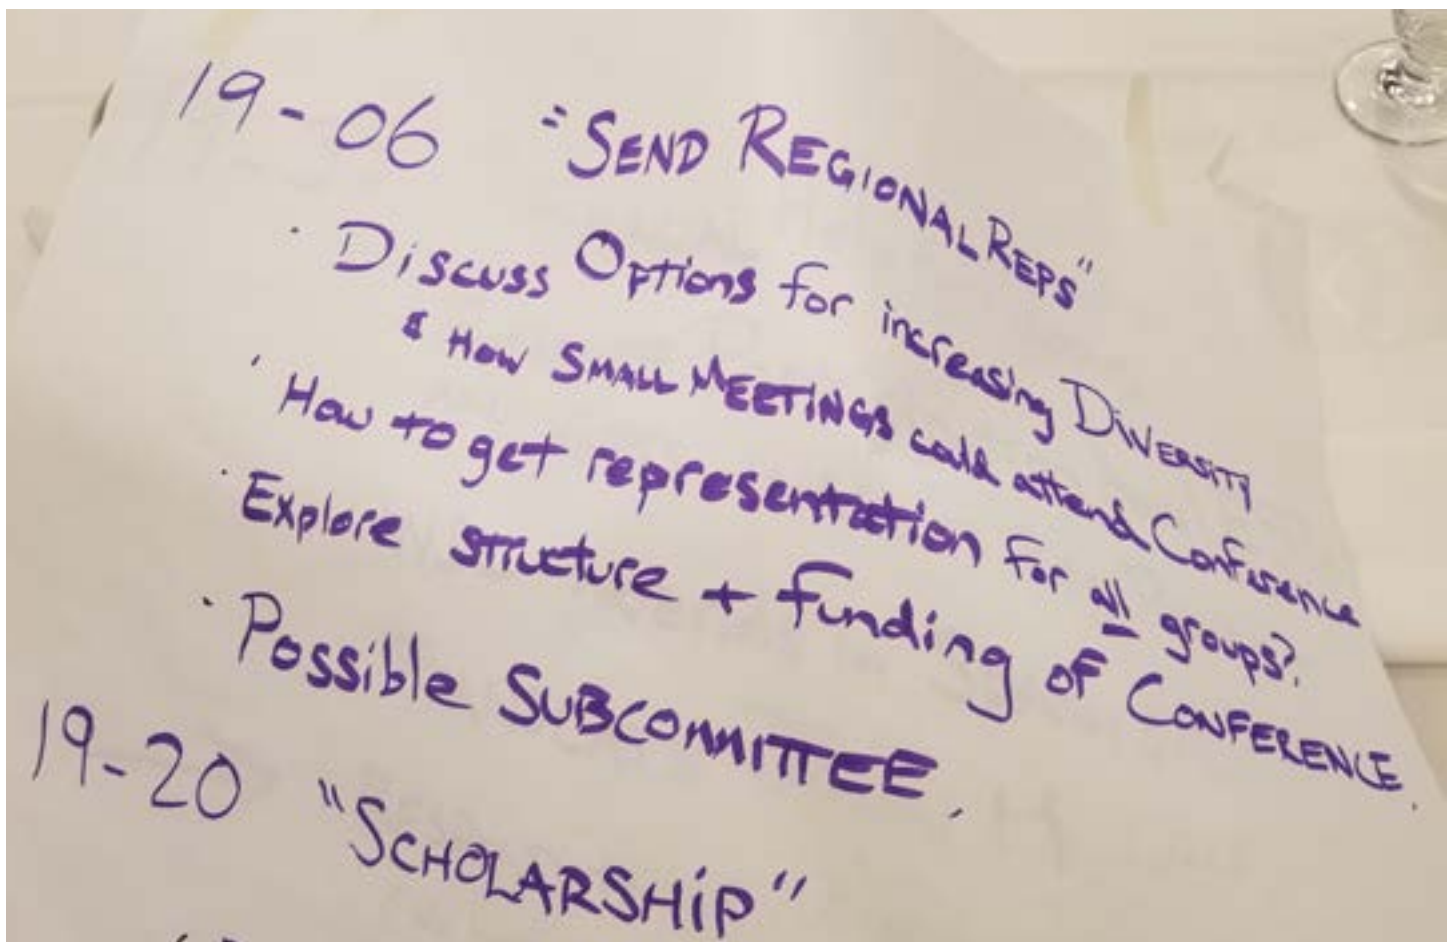 19-06 "SEND REGIONAL REPS"
· Discuss Options for increasing Diversity
& How Small Meetings could attend Conference
· How to get representation for all groups?
· Explore structure + funding of CONFERENCE.
· Possible SUBCOMMITTEE.
19-20 "SCHOLARSHiP"